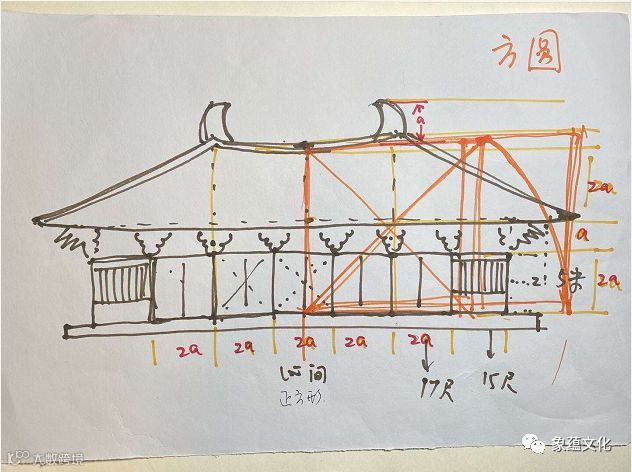 方圆
a
2a
a
2a
5米
2a
2a
2a
2a
2a
心间
正方形
17尺
15尺
大数跨境
象蕴文化